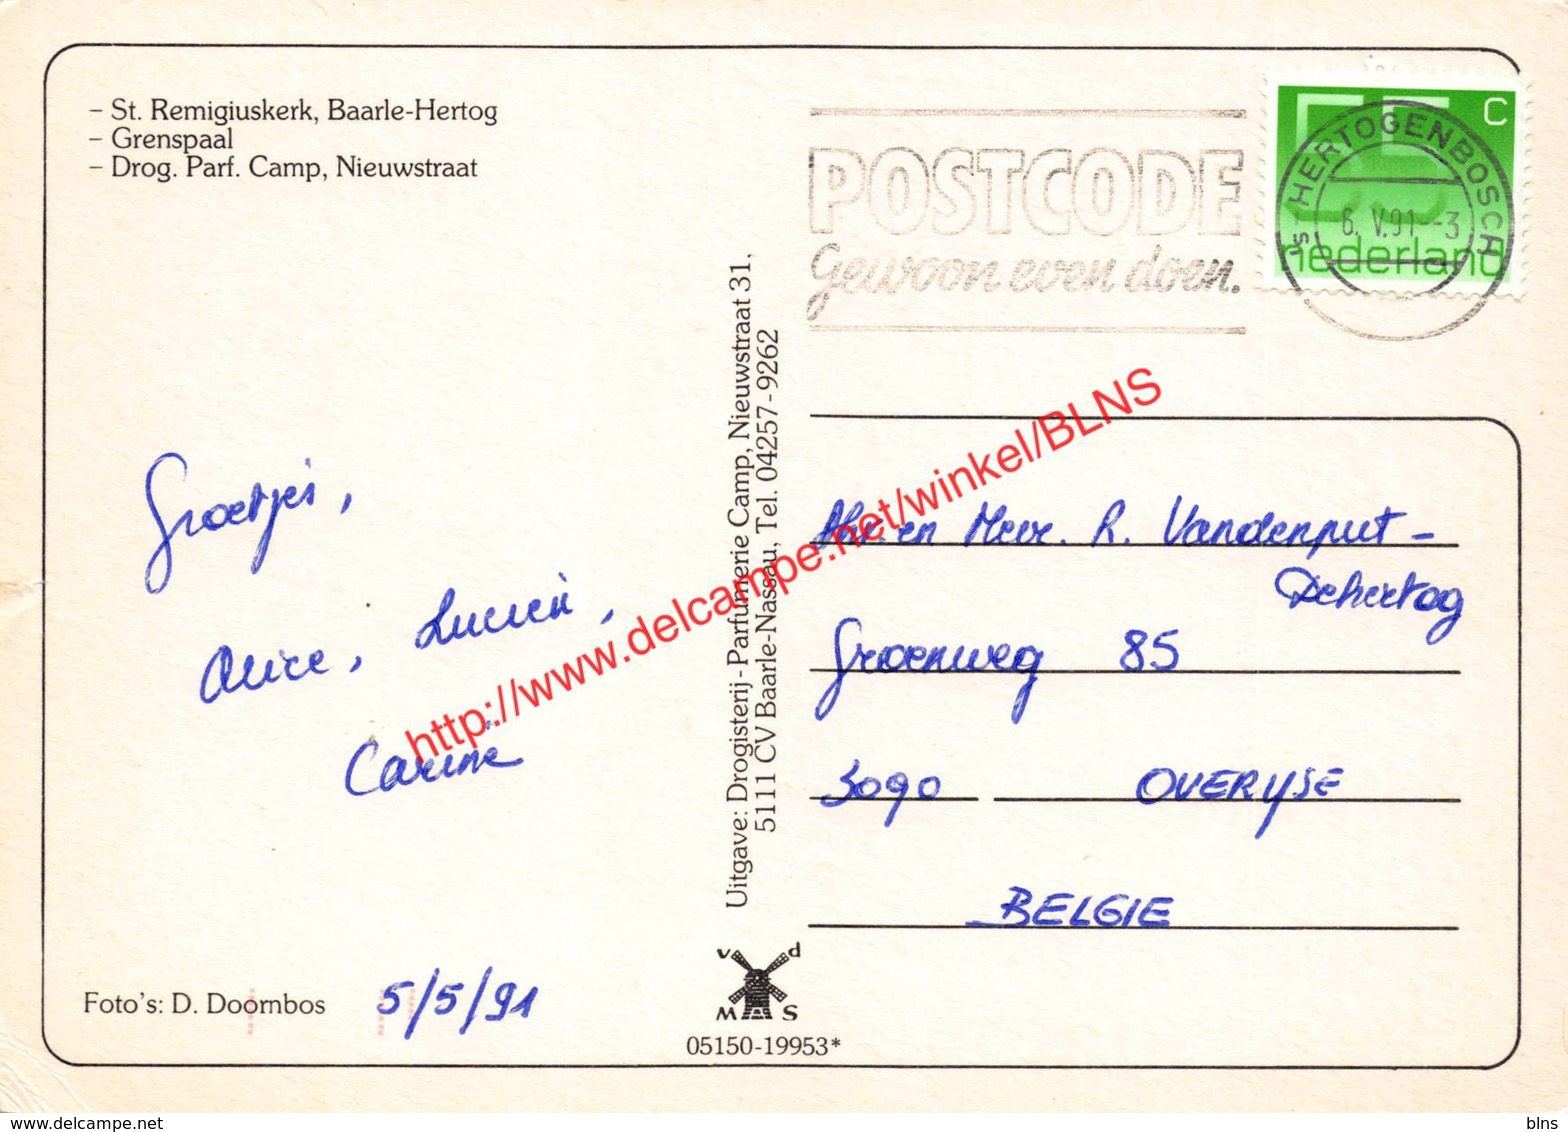 – St. Remigiuskerk, Baarle-Hertog
– Grenspaal
– Drog. Parf. Camp, Nieuwstraat
POSTCODE
Gewoon even doen.
55 C
nederland
's HERTOGENBOSCH
6.V.91--3
Groetjes,
Alice, Lucien,
Carine
Foto's: D. Doornbos
5/5/91
Uitgave: Drogisterij - Parfumerie Camp, Nieuwstraat 31,
5111 CV Baarle-Nassau, Tel. 04257-9262
v d
M S
05150-19953*
Mhr. en Mevr. R. Vandenput-
Dehertog
Groenweg 85
3090 OVERIJSE
BELGIE
http://www.delcampe.net/winkel/BLNS
www.delcampe.net
blns